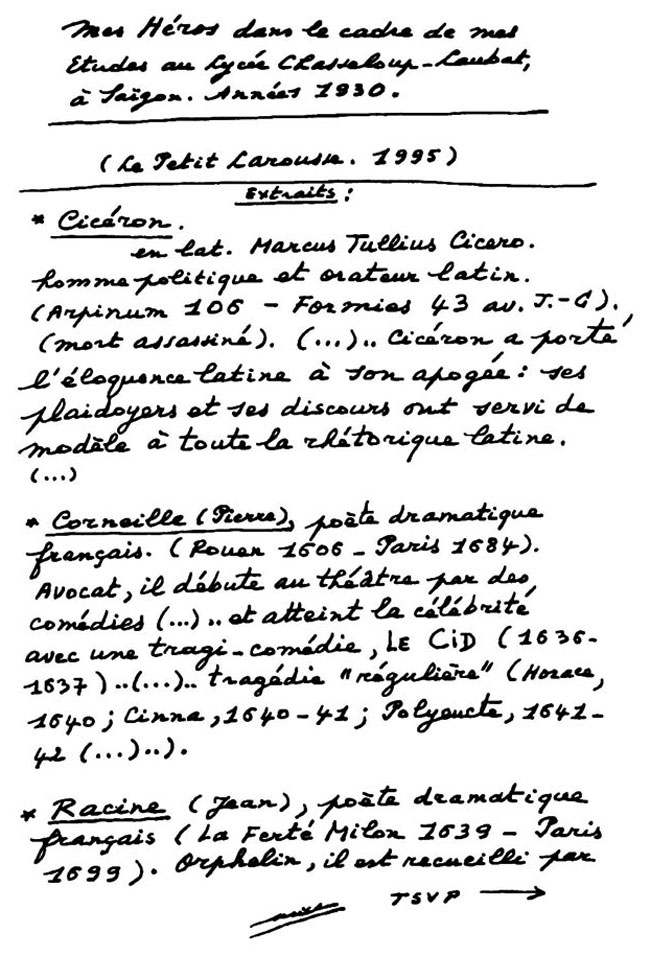 Mes Héros dans le cadre de mes
Etudes au Lycée Chasseloup-Laubat,
à Saïgon. Années 1930.
(Le Petit Larousse. 1995)
Extraits :
* Cicéron.
en lat. Marcus Tullius Cicero.
homme politique et orateur latin.
(Arpinum 106 - Formies 43 av. J.-C).
(mort assassiné). (...).. Cicéron a porté
l'éloquence latine à son apogée : ses
plaidoyers et ses discours ont servi de
modèle à toute la rhétorique latine.
(...)
* Corneille (Pierre), poète dramatique
français. (Rouen 1606 - Paris 1684).
Avocat, il débute au théâtre par des
comédies (...) .. et atteint la célébrité
avec une tragi-comédie, LE CiD (1636-
1637)..(...).. tragédie "régulière" (Horace,
1640 ; Cinna, 1640-41 ; Polyeucte, 1641-
42 (...)..).
* Racine (Jean), poète dramatique
français (La Ferté Milon 1639 - Paris
1699). Orphelin, il est recueilli par
TSVP →